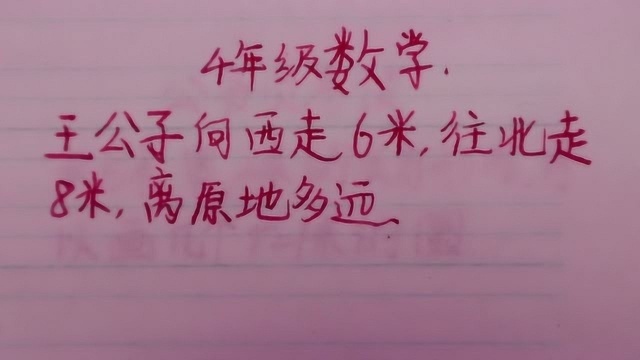 4年级数学.
王公子向西走6米,往北走
8米,离原地多远